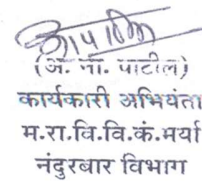 (अ. ना. पाटील)
कार्यकारी अभियंता
म.रा.वि.वि.कं.मर्या
नंदुरबार विभाग